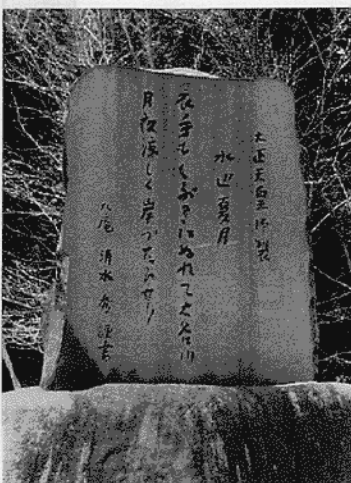 大正天皇御製
水辺夏月
衣手もしぶきにぬれて大谷川
月夜涼しく岸づたひせり
清水
謹書